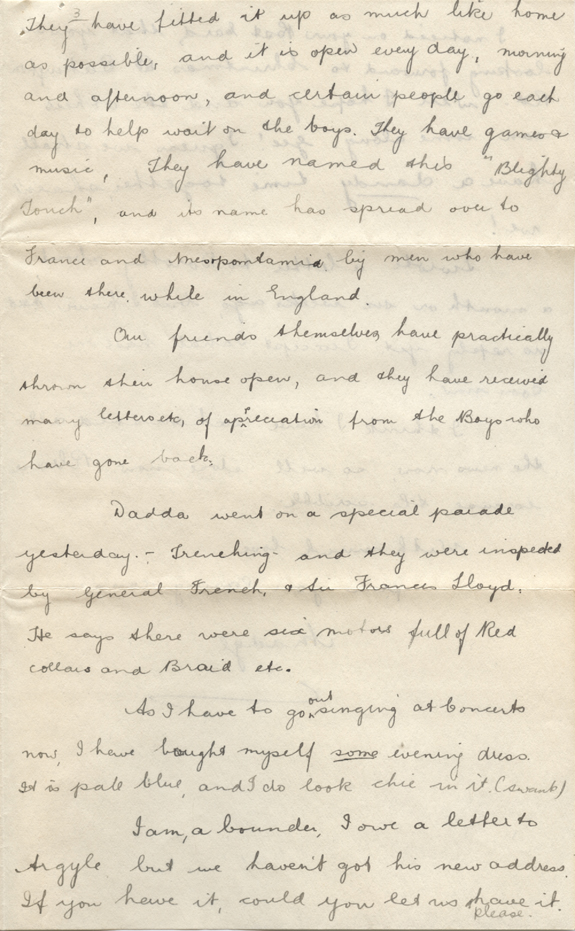 3
They have fitted it up as much like home
as possible, and it is open every day, morning
and afternoon, and certain people go each
day to help wait on the boys. They have games &
music, They have named this "Blighty
Touch", and its name has spread over to
France and Mesopomtamia by men who have
been there while in England.
Our friends themselves have practically
thrown their house open, and they have received
many letters etc, of apreciation from the Boys who
have gone back.
Dadda went on a special parade
yesterday. - Trenching - and they were inspected
by General French, & Sir Francis Lloyd.
He says there were six motors full of Red
collars and Braid etc.
As I have to go out singing at Concerts
now, I have bought myself some evening dress.
It is pale blue, and I do look chic in it. (swank)
I am, a bounder, I owe a letter to
Argyle but we haven't got his new address.
If you have it, could you let us have it.
please.